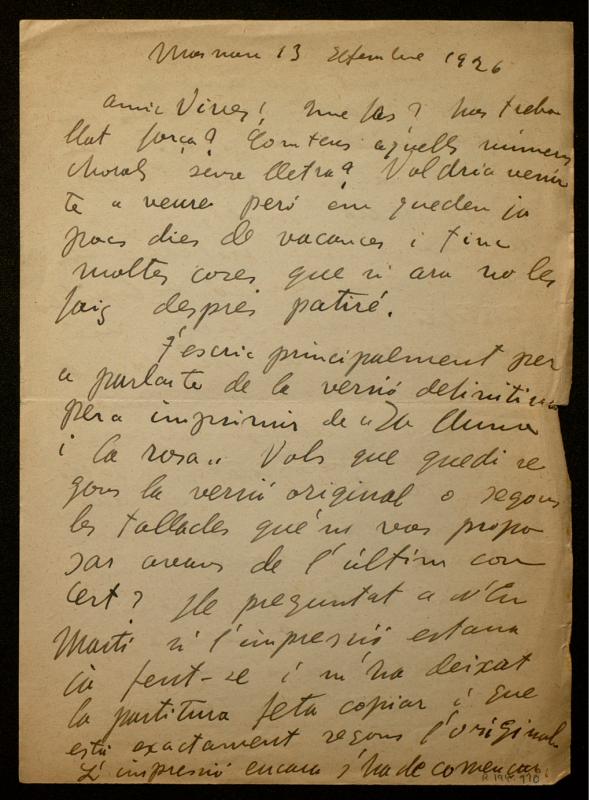 Masnou 13 Setembre 1926
Amic Vives! Que fas? has treba
llat força? Com tens aquells números
chorals sense lletra? Valdria venir
te a veure però em queden ja
pocs dies de vacances i tinc
moltes coses que si ara no les
faig després patiré.
T'escric principalment per
a parlarte de la versió definitiva
per a imprimir de "La lluna
i la rosa". Vols que quedi se
gons la versió original o segons
les tallades que'ns vas propo
sar avans de l'últim con
cert? He preguntat a N'En
Martí si l'impresió estava
ja fent-se i m'ha deixat
la partitura feta copiar i que
està exactament segons l'original.
L'impresió encara s'ha de començar.